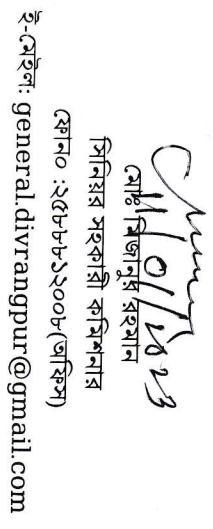 ১১/০১/২০২৩
মোঃ মিজানুর রহমান
সিনিয়র সহকারী কমিশনার
ফোনঃ ০২৫৮৮৮১২০০৮(অফিস)
ই-মেইল: general.divrangpur@gmail.com